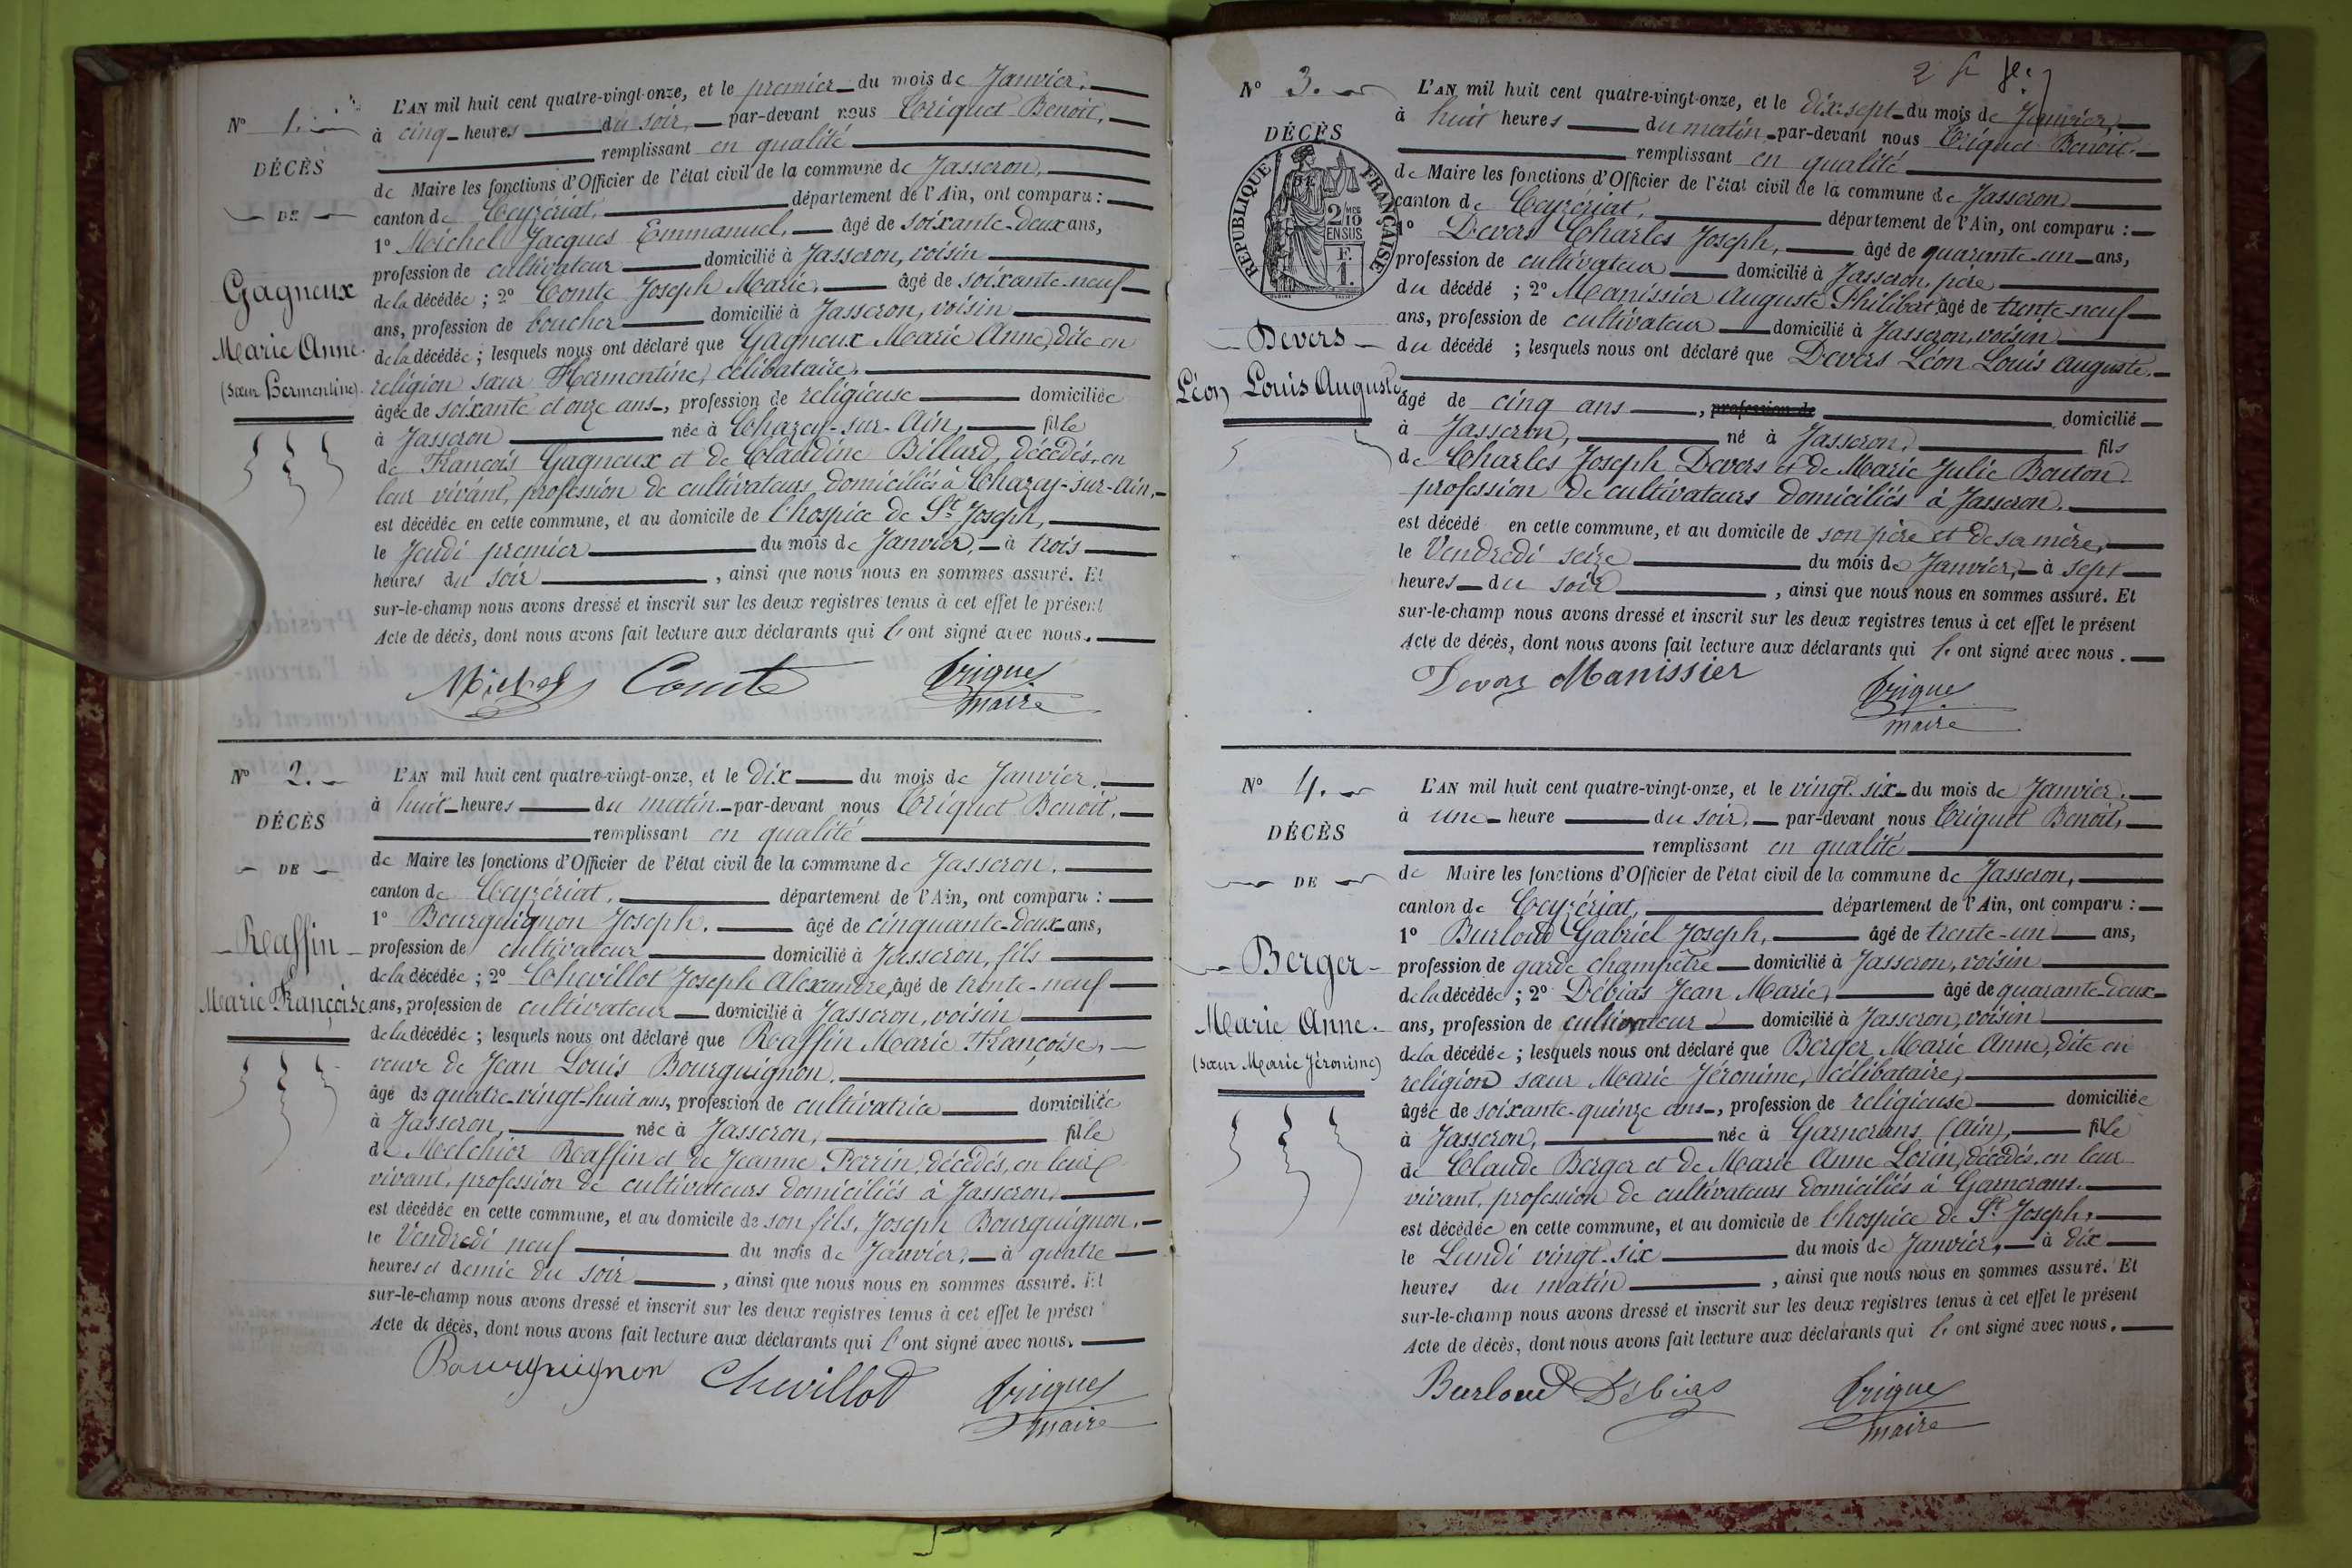 N° 1.
DÉCÈS
DE
Gagneux
Marie Anne.
(sœur Hermentine).
L'AN mil huit cent quatre-vingt-onze, et le premier du mois de Janvier,
à cinq heures du soir, par-devant nous Triquet Benoit,
remplissant en qualité
de Maire les fonctions d'Officier de l'état civil de la commune de Jasseron,
canton de Ceyzériat, département de l'Ain, ont comparu :
1° Michel Jacques Emmanuel, âgé de soixante-deux ans,
profession de cultivateur domicilié à Jasseron, voisin
de la décédée ; 2° Comte Joseph Marie, âgé de soixante-neuf
ans, profession de boucher domicilié à Jasseron, voisin
de la décédée ; lesquels nous ont déclaré que Gagneux Marie Anne, dite en
religion sœur Hermentine, célibataire,
âgée de soixante et onze ans, profession de religieuse domiciliée
à Jasseron née à Chazey-sur-Ain, fille
de François Gagneux et de Claudine Billard, décédés, en
leur vivant, profession de cultivateurs domiciliés à Chazey-sur-Ain,
est décédée en cette commune, et au domicile de l'hospice de St Joseph,
le Jeudi premier du mois de Janvier, à trois
heures du soir, ainsi que nous nous en sommes assuré. Et
sur-le-champ nous avons dressé et inscrit sur les deux registres tenus à cet effet le présent
Acte de décès, dont nous avons fait lecture aux déclarants qui l'ont signé avec nous.
Michel Comte Triquet
maire
N° 2.
DÉCÈS
DE
Raffin
Marie Françoise
L'AN mil huit cent quatre-vingt-onze, et le dix du mois de Janvier,
à huit heures du matin, par-devant nous Triquet Benoit,
remplissant en qualité
de Maire les fonctions d'Officier de l'état civil de la commune de Jasseron,
canton de Ceyzériat, département de l'Ain, ont comparu :
1° Bourguignon Joseph, âgé de cinquante-deux ans,
profession de cultivateur domicilié à Jasseron, fils
de la décédée ; 2° Chevillot Joseph Alexandre, âgé de trente-neuf
ans, profession de cultivateur domicilié à Jasseron, voisin
de la décédée ; lesquels nous ont déclaré que Raffin Marie Françoise,
veuve de Jean Louis Bourguignon,
âgé de quatre-vingt-huit ans, profession de cultivatrice domiciliée
à Jasseron, née à Jasseron, fille
de Melchior Raffin et de Jeanne Perrin, décédés, en leur
vivant, profession de cultivateurs domiciliés à Jasseron,
est décédée en cette commune, et au domicile de son fils, Joseph Bourguignon,
le Vendredi neuf du mois de Janvier, à quatre
heures et demie du soir, ainsi que nous nous en sommes assuré. Et
sur-le-champ nous avons dressé et inscrit sur les deux registres tenus à cet effet le présent
Acte de décès, dont nous avons fait lecture aux déclarants qui l'ont signé avec nous.
Bourguignon Chevillot Triquet
maire
N° 3.
DÉCÈS
DE
RÉPUBLIQUE FRANÇAISE
2/10 MES
EN SUS
F.
1.
Devers
Léon Louis Auguste
L'AN mil huit cent quatre-vingt-onze, et le dix-sept du mois de Janvier,
à huit heures du matin par-devant nous Triquet Benoit,
remplissant en qualité
de Maire les fonctions d'Officier de l'état civil de la commune de Jasseron
canton de Ceyzériat, département de l'Ain, ont comparu :
1° Devers Charles Joseph, âgé de quarante-un ans,
profession de cultivateur domicilié à Jasseron, père
du décédé ; 2° Manissier Auguste Philibert âgé de trente-neuf
ans, profession de cultivateur domicilié à Jasseron, voisin
du décédé ; lesquels nous ont déclaré que Devers Léon Louis Auguste,
âgé de cinq ans, profession de domicilié
à Jasseron, né à Jasseron, fils
de Charles Joseph Devers et de Marie Julie Bouton,
profession de cultivateurs domiciliés à Jasseron,
est décédé en cette commune, et au domicile de son père et de sa mère,
le Vendredi seize du mois de Janvier, à sept
heures du soir, ainsi que nous nous en sommes assuré. Et
sur-le-champ nous avons dressé et inscrit sur les deux registres tenus à cet effet le présent
Acte de décès, dont nous avons fait lecture aux déclarants qui l'ont signé avec nous.
Devers Manissier Triquet
maire
N° 4.
DÉCÈS
DE
Berger
Marie Anne.
(sœur Marie Jéronime)
L'AN mil huit cent quatre-vingt-onze, et le vingt-six du mois de Janvier,
à une heure du soir, par-devant nous Triquet Benoit,
remplissant en qualité
de Maire les fonctions d'Officier de l'état civil de la commune de Jasseron,
canton de Ceyzériat, département de l'Ain, ont comparu :
1° Burloud Gabriel Joseph, âgé de trente-un ans,
profession de garde champêtre domicilié à Jasseron, voisin
de la décédée ; 2° Débias Jean Marie, âgé de quarante-deux
ans, profession de cultivateur domicilié à Jasseron, voisin
de la décédée ; lesquels nous ont déclaré que Berger Marie Anne, dite en
religion sœur Marie Jéronime, célibataire,
âgée de soixante-quinze ans, profession de religieuse domiciliée
à Jasseron, née à Garnerans (Ain), fille
de Claude Berger et de Marie Anne Lorin, décédés, en leur
vivant, profession de cultivateurs domiciliés à Garnerans,
est décédée en cette commune, et au domicile de l'hospice de St Joseph,
le Lundi vingt-six du mois de Janvier, à dix
heures du matin, ainsi que nous nous en sommes assuré. Et
sur-le-champ nous avons dressé et inscrit sur les deux registres tenus à cet effet le présent
Acte de décès, dont nous avons fait lecture aux déclarants qui l'ont signé avec nous.
Burloud Débias Triquet
maire